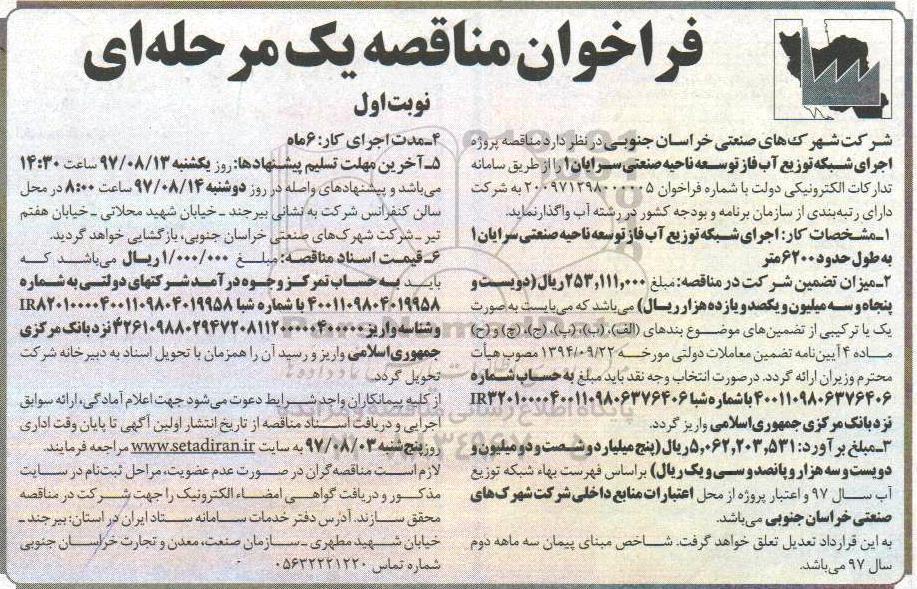 فراخوان مناقصه یک مرحله‌ای
نوبت اول
شرکت شهرک‌های صنعتی خراسان جنوبی در نظر دارد مناقصه پروژه
اجرای شبکه توزیع آب فاز توسعه ناحیه صنعتی سرایان ۱ را از طریق سامانه
تدارکات الکترونیکی دولت با شماره فراخوان ۲۰۰۹۷۱۲۹۸۰۰۰۰۰۵ به شرکت
دارای رتبه‌بندی از سازمان برنامه و بودجه کشور در رشته آب واگذار نماید.
۱ـ مشخصات کار: اجرای شبکه توزیع آب فاز توسعه ناحیه صنعتی سرایان ۱
به طول حدود ۶۲۰۰ متر
۲ـ میزان تضمین شرکت در مناقصه: مبلغ ۲۵۳,۱۱۱,۰۰۰ ریال (دویست و
پنجاه و سه میلیون و یکصد و یازده هزار ریال) می‌باشد که می‌بایست به صورت
یک یا ترکیبی از تضمین‌های موضوع بندهای (الف)، (ب)، (پ)، (ج)، (چ)، و (خ)
ماده ۴ آیین‌نامه تضمین معاملات دولتی مورخه ۱۳۹۴/۰۹/۲۲ مصوب هیأت
محترم وزیران ارائه گردد. در صورت انتخاب وجه نقد باید مبلغ به حساب شماره
۴۰۰۱۱۰۹۸۰۶۳۷۶۴۰۶ با شماره شبا IR۳۲۰۱۰۰۰۰۴۰۰۱۱۰۹۸۰۶۳۷۶۴۰۶
نزد بانک مرکزی جمهوری اسلامی واریز گردد.
۳ـ مبلغ برآورد: ۵,۰۶۲,۲۰۳,۵۳۱ ریال (پنج میلیارد و شصت و دو میلیون و
دویست و سه هزار و پانصد و سی و یک ریال) بر اساس فهرست بهاء شبکه توزیع
آب سال ۹۷ و اعتبار پروژه از محل اعتبارات منابع داخلی شرکت شهرک‌های
صنعتی خراسان جنوبی می‌باشد.
به این قرارداد تعدیل تعلق خواهد گرفت. شاخص مبنای پیمان سه ماهه دوم
سال ۹۷ می‌باشد.
۴ـ مدت اجرای کار: ۶ ماه
۵ـ آخرین مهلت تسلیم پیشنهادها: روز یکشنبه ۹۷/۰۸/۱۳ ساعت ۱۴:۳۰
می‌باشد و پیشنهادهای واصله در روز دوشنبه ۹۷/۰۸/۱۴ ساعت ۸:۰۰ در محل
سالن کنفرانس شرکت به نشانی بیرجند ـ خیابان شهید محلاتی ـ خیابان هفتم
تیر ـ شرکت شهرک‌های صنعتی خراسان جنوبی، بازگشایی خواهد گردید.
۶ـ قیمت اسناد مناقصه: مبلغ ۱/۰۰۰/۰۰۰ ریال می‌باشد که
باید به حساب تمرکز وجوه درآمد شرکتهای دولتی به شماره
۴۰۰۱۱۰۹۸۰۴۰۱۹۹۵۸ با شماره شبا IR۸۲۰۱۰۰۰۰۴۰۰۱۱۰۹۸۰۴۰۱۹۹۵۸
و شناسه واریز ۴۲۶۱۰۹۸۸۰۲۹۴۷۲۰۸۱۱۲۰۰۰۰۰۴۰۰۰۰ نزد بانک مرکزی
جمهوری اسلامی واریز و رسید آن را همزمان با تحویل اسناد به دبیرخانه شرکت
تحویل گردد.
از کلیه پیمانکاران واجد شرایط دعوت می‌شود جهت اعلام آمادگی، ارائه سوابق
اجرایی و دریافت اسناد مناقصه از تاریخ انتشار اولین آگهی تا پایان وقت اداری
روز پنج‌شنبه ۹۷/۰۸/۰۳ به سایت www.setadiran.ir مراجعه فرمایند.
لازم است مناقصه‌گران در صورت عدم عضویت، مراحل ثبت‌نام در سایت
مذکور و دریافت گواهی امضاء الکترونیک را جهت شرکت در مناقصه
محقق سازند. آدرس دفتر خدمات سامانه ستاد ایران در استان: بیرجند ـ
خیابان شهید مطهری ـ سازمان صنعت، معدن و تجارت خراسان جنوبی
شماره تماس ۰۵۶۳۲۲۲۱۲۲۰